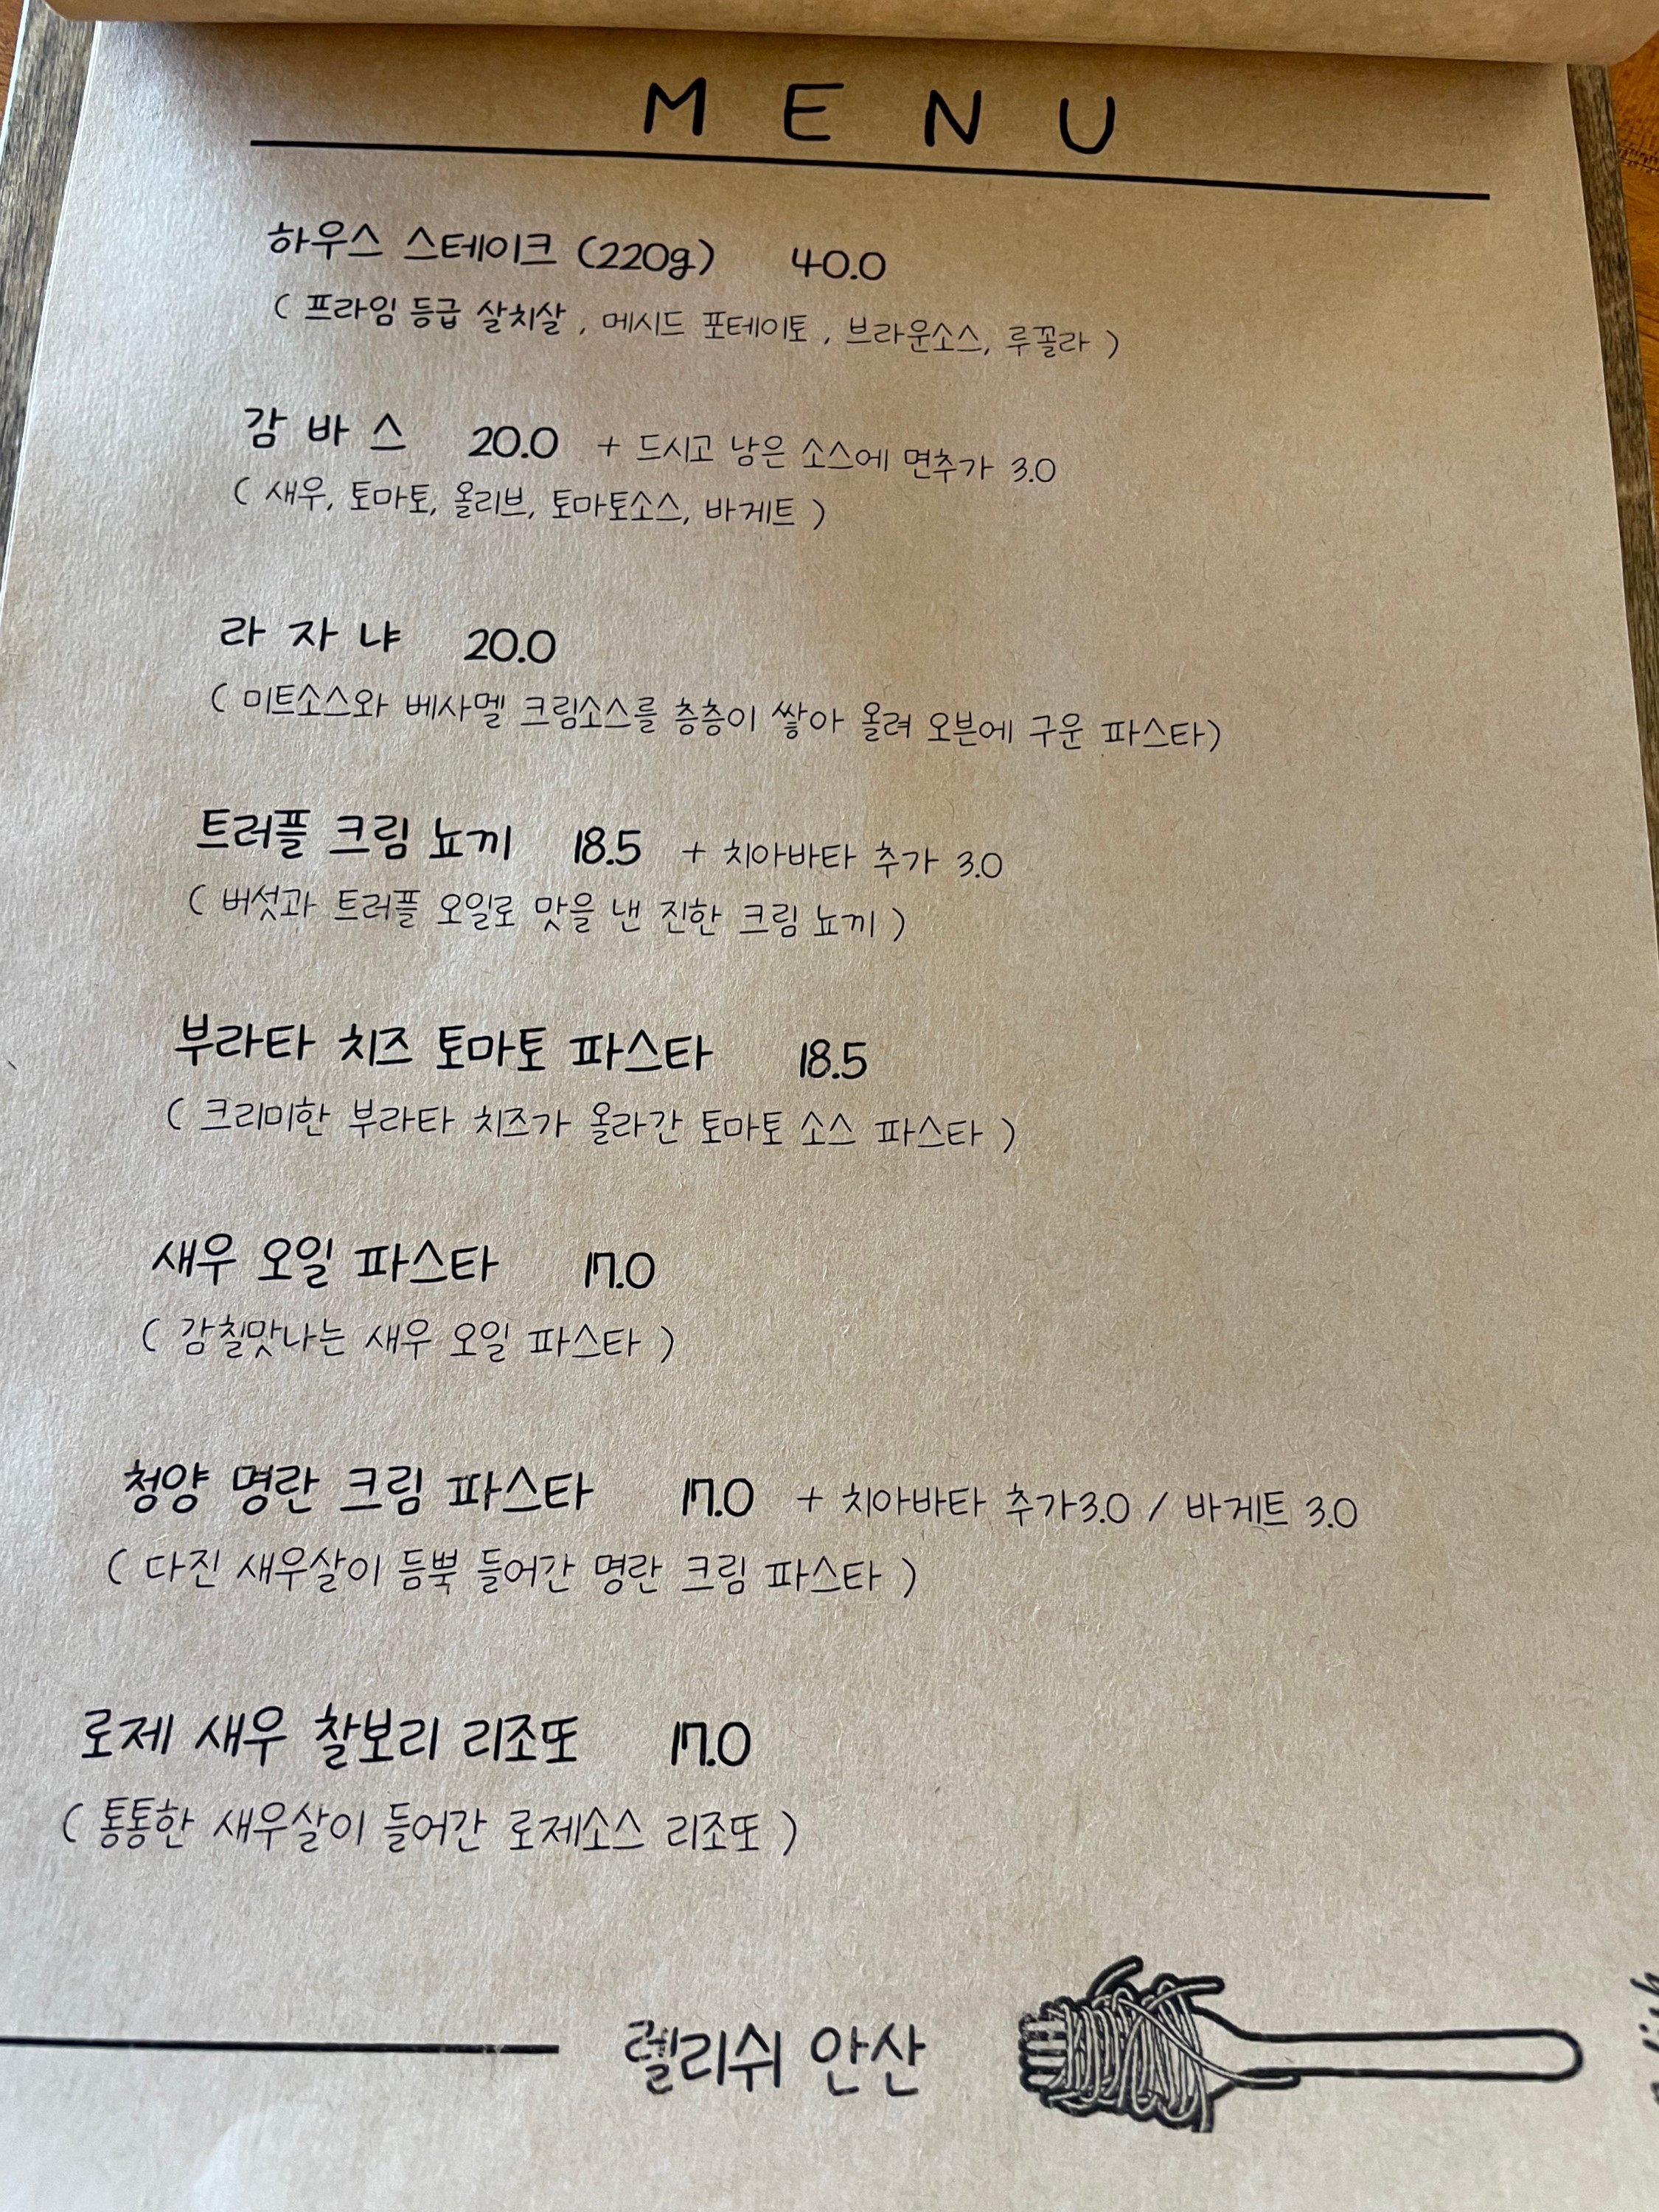 MENU
하우스 스테이크 (220g) 40.0
( 프라임 등급 살치살 , 메시드 포테이토 , 브라운소스, 루꼴라 )
감 바 스 20.0 + 드시고 낭은 소스에 면추가 3.0
( 새우, 토마토, 올리브, 토마토소스, 바게트 )
라 자 냐 20.0
( 미트소스와 베사멜 크림소스를 층층이 쌓아 올려 오븐에 구운 파스타)
트러플 크림 뇨끼 18.5 + 치아바타 추가 3.0
( 버섯과 트러플 오일로 맛을 낸 진한 크림 뇨끼 )
부라타 치즈 토마토 파스타 18.5
( 크리미한 부라타 치즈가 올라간 토마토 소스 파스타 )
새우 오일 파스타 17.0
( 감칠맛나는 새우 오일 파스타 )
청양 명란 크림 파스타 17.0 + 치아바타 추가3.0 / 바게트 3.0
( 다진 새우살이 듬뿍 들어간 명란 크림 파스타 )
로제 새우 찰보리 리조또 17.0
( 통통한 새우살이 들어간 로제소스 리조또 )
렐리쉬 안산